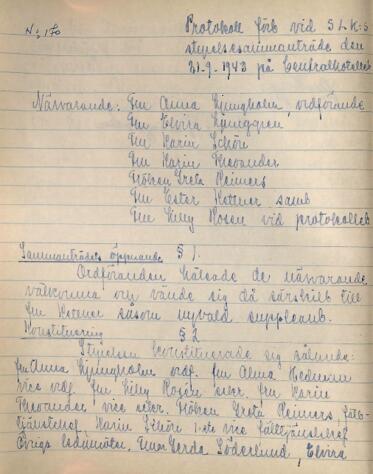 N: 170
Protokoll förb vid S L K:s
styrelsesammanträde den
21-9-1943 på Centralhotellet
Närvarande: Fru Anna Ljungholm, ordförande
Fru Elvira Ljunggren
Fru Karin Schöre
Fru Karin Theorander
Fröken Greta Reimers
Fru Ester Kottner samt
Fru Lilly Rosen vid protokollet
Sammanträdets öppnande § 1.
Ordföranden hälsade de närvarande
välkomna och vände sig då särskilt till
fru Kottner såsom nyvald suppleant.
Konstituering § 2
Styrelsen konstituerade sig sålunda:
fru Anna Ljungholm ordf. fru Alma Hedman
vice ordf. fru Lilly Rosén sekr. fru Karin
Theorander vice sekr. Fröken Greta Reimers
tjänstchef. Karin Schöre 1-ste vice fälttjänstchef
Övriga ledamöter, Fruar Gerda Söderlund, Elvira